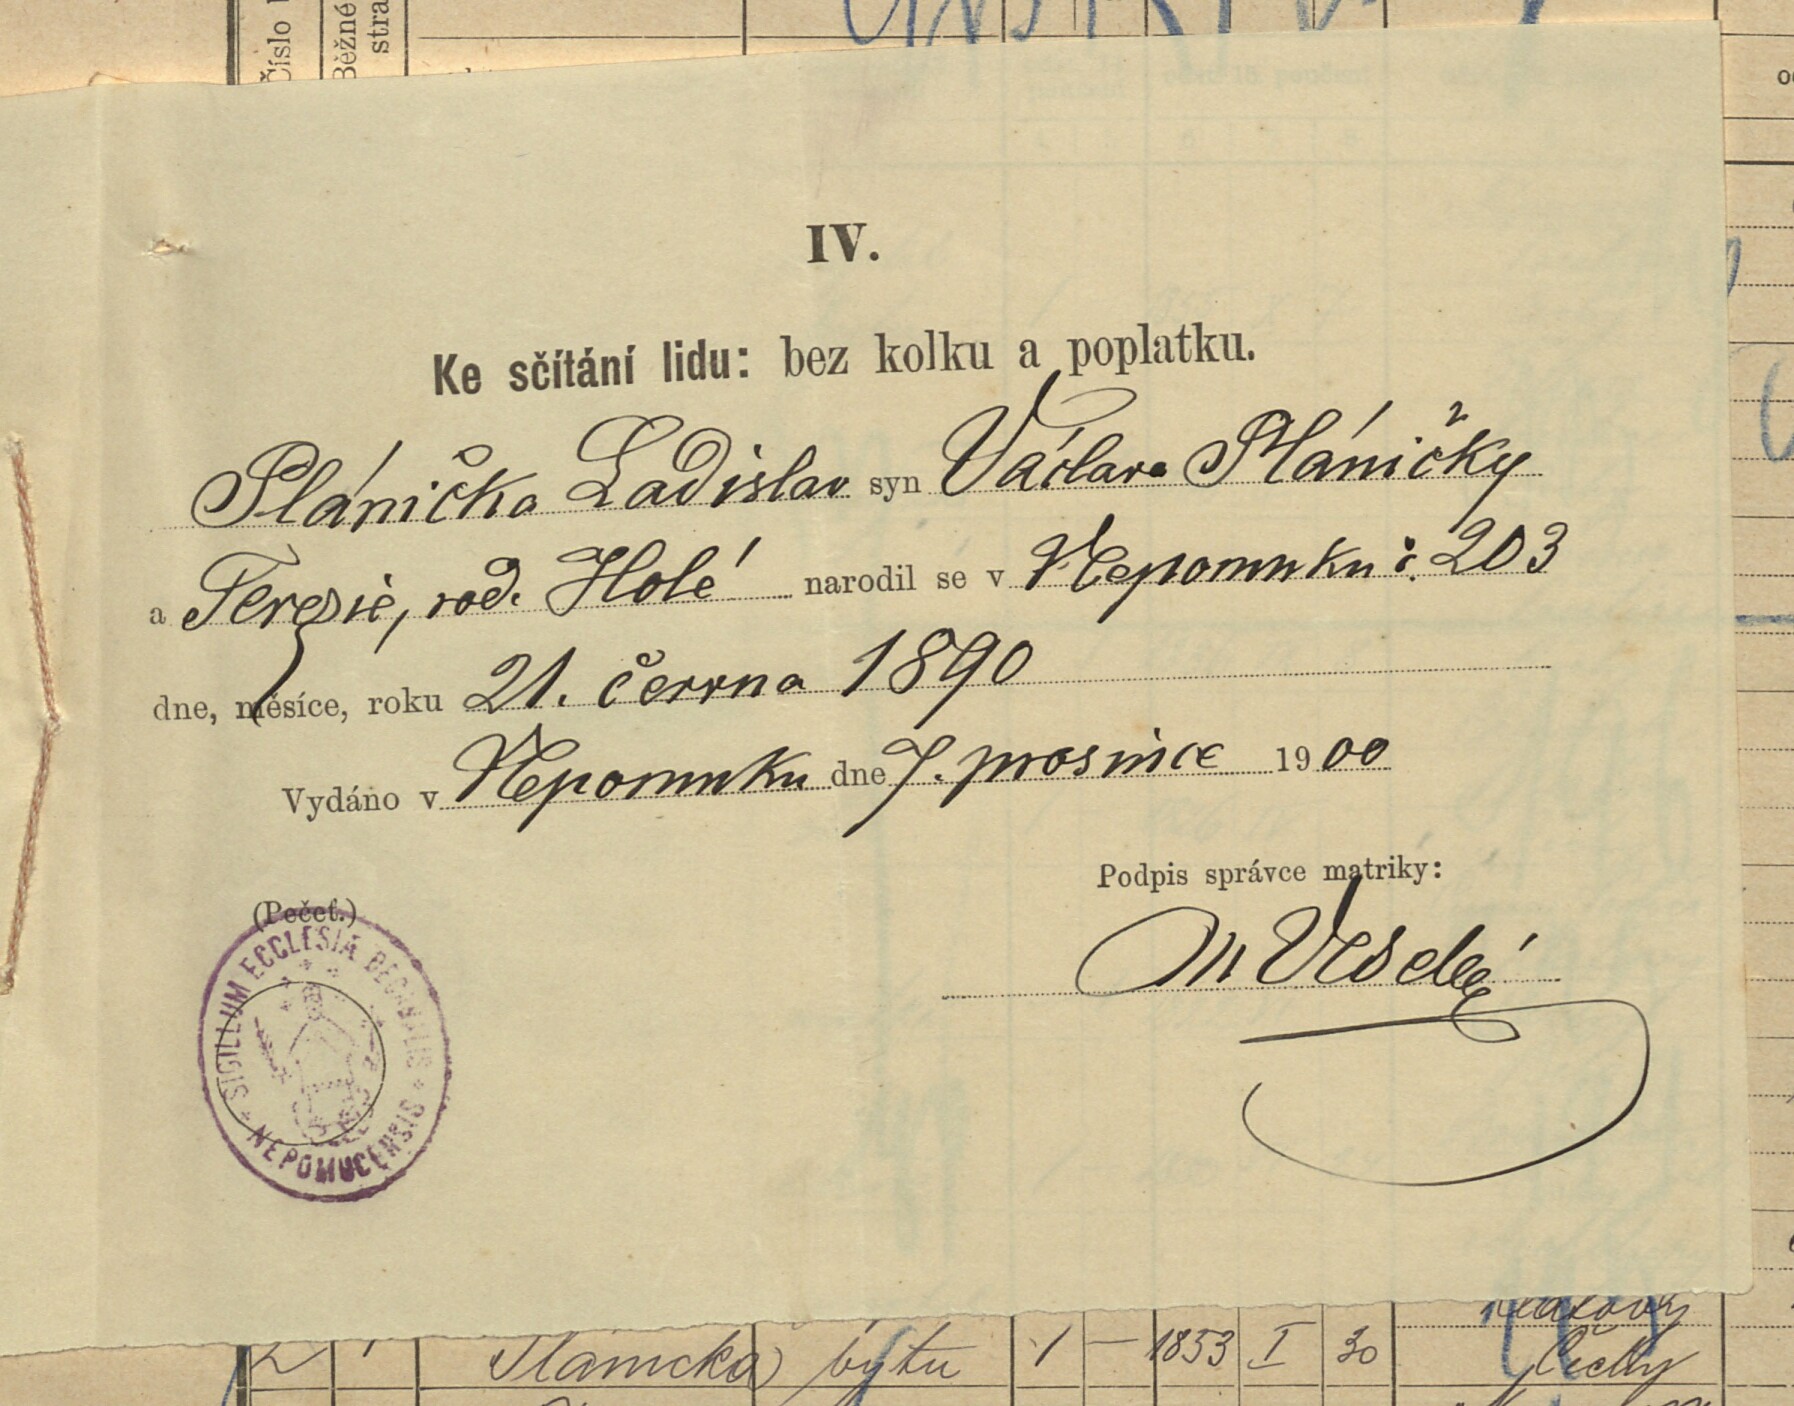 Číslo
Běžné
stra
IV.
Ke sčítání lidu: bez kolku a poplatku.
Plánička Ladislav syn Václava Pláničky
a Terezie, rod. Holé narodil se v Nepomuku č. 203
dne, měsíce, roku 21. června 1890
Vydáno v Nepomuku dne 7. prosince 1900
Podpis správce matriky:
(Pečeť.)
M Veselý
SIGILLUM ECCLESIÆ DECANALIS
NEPOMUCENSIS
2 1 Plánička bytu 1 — 1853 I 30 Čechy